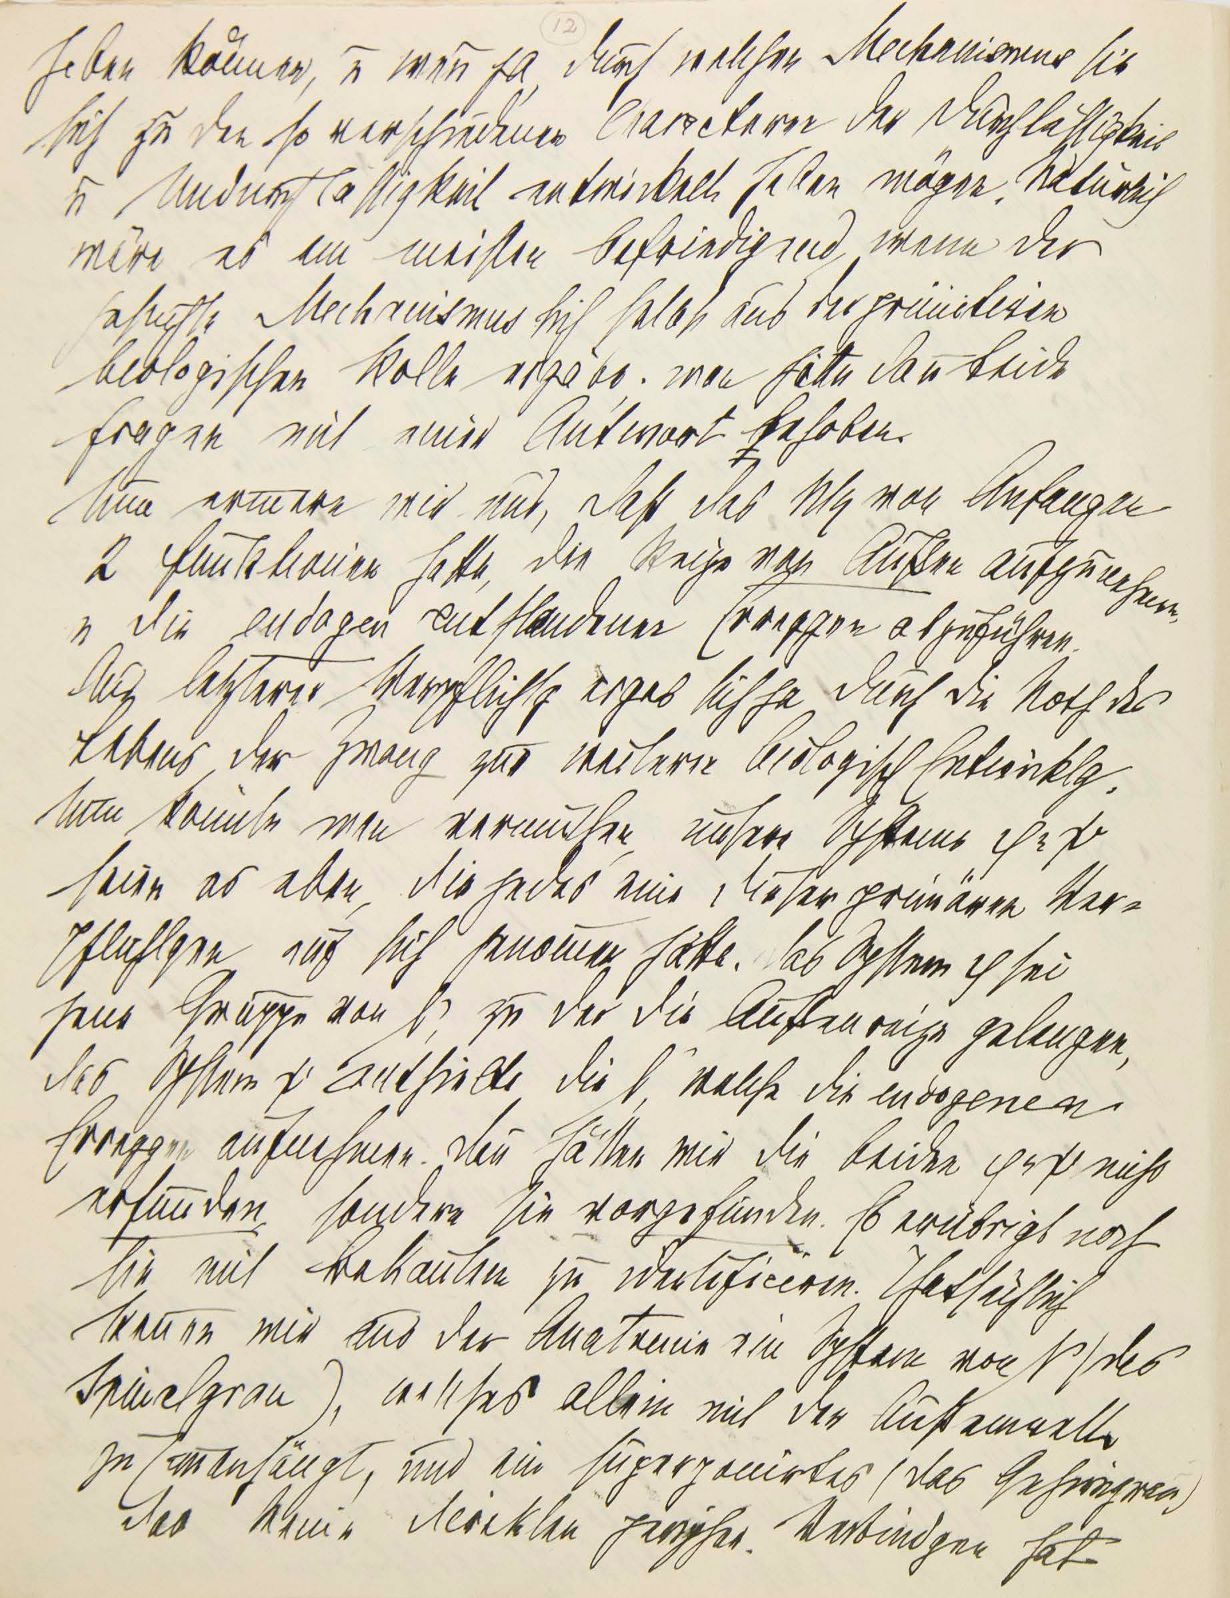 12
haben können, u wenn ja, durch welchen Mechanismus sie
sich zu den so verschiedenen Characteren der Durchlässigkeit
u Undurchlässigkeit entwickelt haben mögen. Natürlich
wäre es am meisten befriedigend, wenn der
gesuchte Mechanismus sich selbst aus der primitiven
biologischen Rolle ergäbe. man hätte dann beide
Fragen mit einer Antwort behoben.
Nun erinnern wir uns, daß das N von Anfang an
2 Funktionen hatte, die Reize von Außen aufzunehmen,
u die endogen entstandenen Erreggen abzuführen.
Aus letzterer Verpflichtg ergab sich ja durch die Noth des
Lebens der Zwang zur weiteren biologisch Entwicklg.
Nun könnte man vermuthen, unsere Systeme φ u ψ
seien es eben, die jedes eine dieser primären Ver=
pflichtgen auf sich genommen hätte. das System φ sei
jene Gruppe von N, zu der die Außenreize gelangen,
das System ψ enthielte die N, welche die endogenen
Erreggen aufnehmen. dann hätten wir die beiden φ u ψ nicht
erfunden, sondern sie vorgefunden. Es erübrigt noch
sie mit Bekanntem zu identificieren. Thatsächlich
kennen wir aus der Anatomie ein System von N (das
Spinalgrau), welches allein mit der Außenwelt
zusammenhängt, und ein superponirtes (das Gehirngrau)
das keine direkten peripher. Verbindgen hat